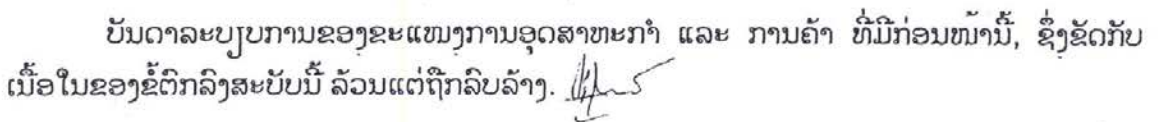 ບັນດາລະບຽບການຂອງຂະແໜງການອຸດສາຫະກຳ ແລະ ການຄ້າ ທີ່ມີກ່ອນໜ້ານີ້, ຊຶ່ງຂັດກັບ
ເນື້ອໃນຂອງຂໍ້ຕົກລົງສະບັບນີ້ ລ້ວນແຕ່ຖືກລົບລ້າງ.